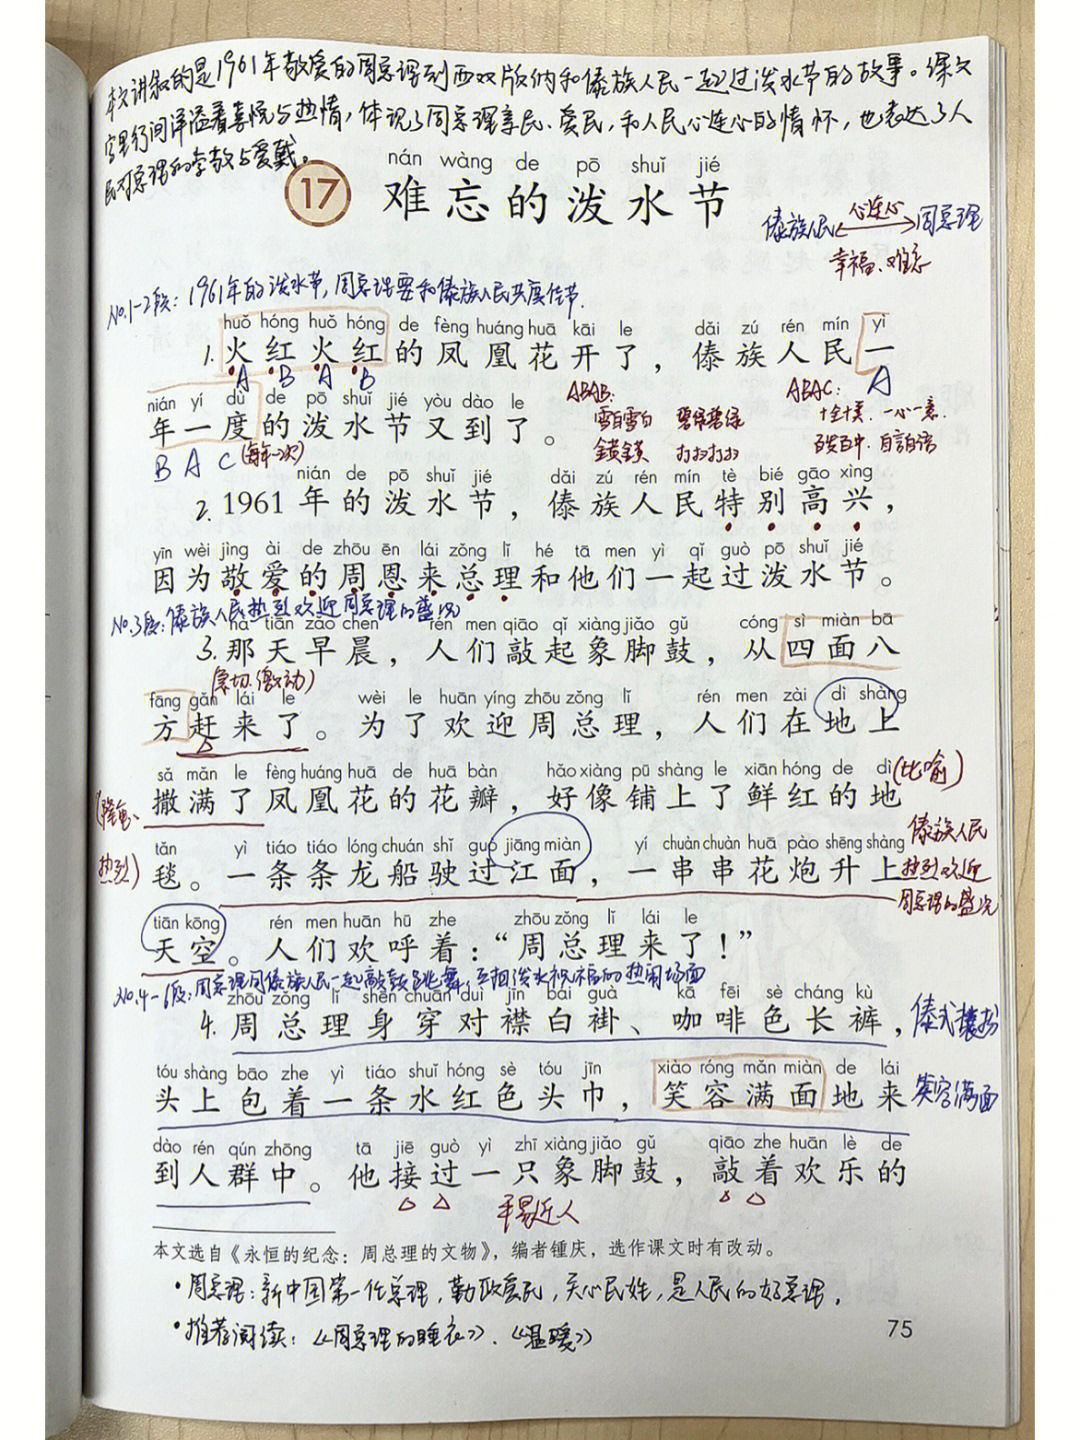 本文讲叙的是1961年敬爱的周总理到西双版纳和傣族人民一起过泼水节的故事。课文
字里行间洋溢着喜悦与热情，体现了周总理亲民、爱民，和人民心连心的情怀，也表达了人
民对总理的尊敬与爱戴。
nán wàng de pō shuǐ jié
17 难忘的泼水节
心连心
傣族人民 周总理
幸福、难忘
No.1-2段：1961年的泼水节，周总理要和傣族人民共度佳节.
huǒ hóng huǒ hóng de fèng huáng huā kāi le dǎi zú rén mín yì
1. 火红火红的凤凰花开了，傣族人民一
A B A B A
nián yí dù de pō shuǐ jié yòu dào le
年一度的泼水节又到了。
B A C (每年一次)
ABAB: ABAC:
雪白雪白 碧绿碧绿 十全十美. 一心一意.
打扫打扫 百发百中. 自言自语
nián de pō shuǐ jié dǎi zú rén mín tè bié gāo xìng
2. 1961年的泼水节，傣族人民特别高兴，
yīn wèi jìng ài de zhōu ēn lái zǒng lǐ hé tā men yì qǐ guò pō shuǐ jié
因为敬爱的周恩来总理和他们一起过泼水节。
No.3段：傣族人民热烈欢迎周总理的盛况
nà tiān zǎo chen rén men qiāo qǐ xiàng jiǎo gǔ cóng sì miàn bā
3. 那天早晨，人们敲起象脚鼓，从四面八
(急切、激动)
fāng gǎn lái le wèi le huān yíng zhōu zǒng lǐ rén men zài dì shàng
方赶来了。为了欢迎周总理，人们在地上
sǎ mǎn le fèng huáng huā de huā bàn hǎo xiàng pū shàng le xiān hóng de dì (比喻)
(隆重、 撒满了凤凰花的花瓣，好像铺上了鲜红的地
tǎn yì tiáo tiáo lóng chuán shǐ guò jiāng miàn yí chuàn chuàn huā pào shēng shàng 傣族人民
热烈) 毯。一条条龙船驶过江面，一串串花炮升上 热烈欢迎
周总理的盛况
tiān kōng rén men huān hū zhe zhōu zǒng lǐ lái le
天空。人们欢呼着：“周总理来了！”
No.4-6段：周总理同傣族人民一起敲鼓跳舞，互相泼水祝福的热闹场面
zhōu zǒng lǐ shēn chuān duì jīn bái guà kā fēi sè cháng kù
4. 周总理身穿对襟白褂、咖啡色长裤， 傣式装扮
tóu shàng bāo zhe yì tiáo shuǐ hóng sè tóu jīn xiào róng mǎn miàn de lái
头上包着一条水红色头巾，笑容满面地来 笑容满面
dào rén qún zhōng tā jiē guò yì zhī xiàng jiǎo gǔ qiāo zhe huān lè de
到人群中。他接过一只象脚鼓，敲着欢乐的
平易近人
本文选自《永恒的纪念：周总理的文物》，编者锺庆，选作课文时有改动。
•周总理：新中国第一任总理，勤政爱民，关心民姓，是人民的好总理，
•推荐阅读：《周总理的睡衣》.《温暖》
75